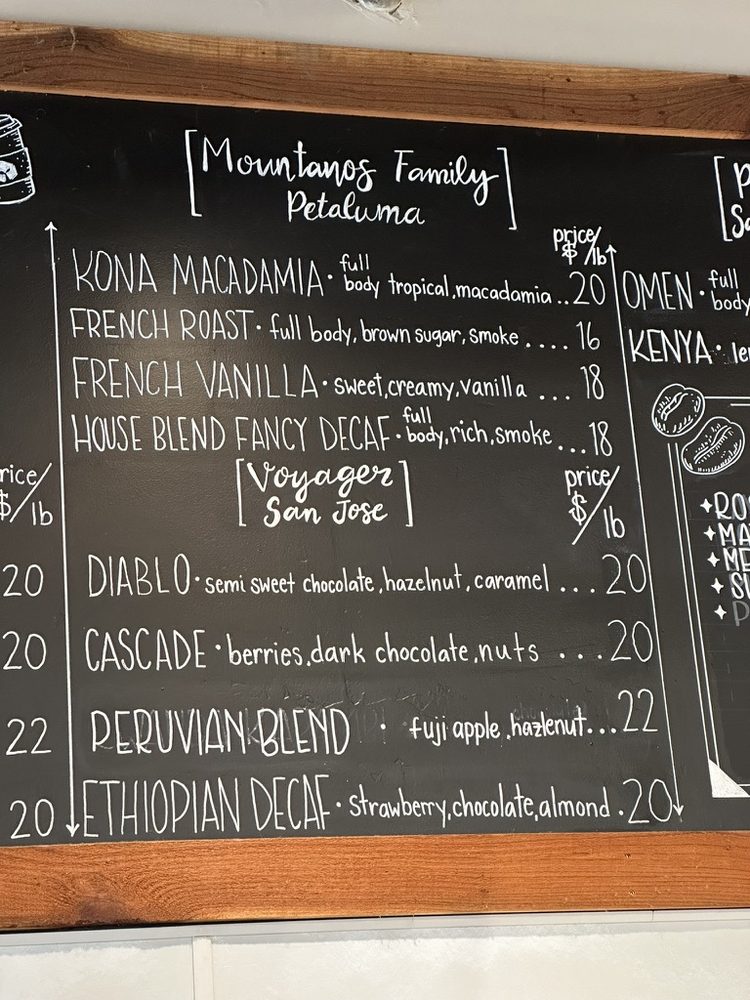 [Mountanos Family
Petaluma]
price/
$/lb
KONA MACADAMIA · full body tropical, macadamia .. 20
FRENCH ROAST · full body, brown sugar, smoke .... 16
FRENCH VANILLA · sweet, creamy, vanilla ... 18
HOUSE BLEND FANCY DECAF · full body, rich, smoke ... 18
[Voyager
San Jose]
price/
$/lb
DIABLO · semi sweet chocolate, hazelnut, caramel ... 20
CASCADE · berries, dark chocolate, nuts ... 20
PERUVIAN BLEND · fuji apple, hazlenut... 22
ETHIOPIAN DECAF · strawberry, chocolate, almond . 20
$/lb
20
20
22
20
OMEN · full body
KENYA ·